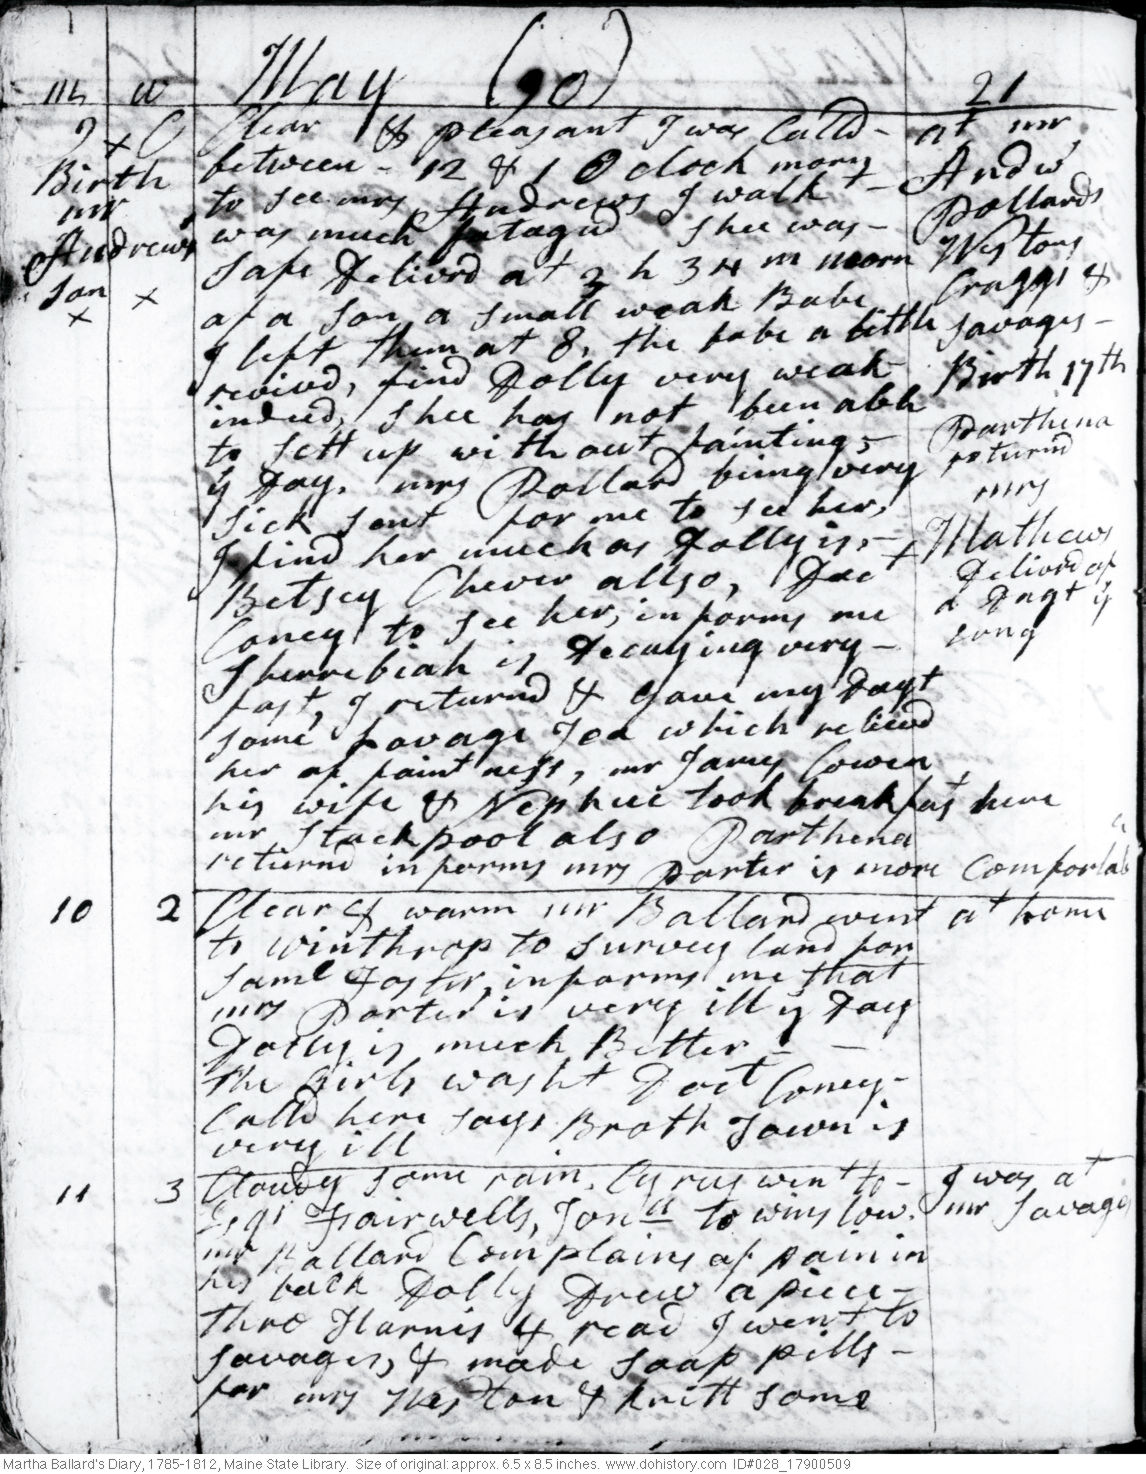 m w May (90) 21
9 x C Clear & pleasant I was Calld - at mr
Birth between - 12 & 1 O Clock morn Andw
mr to see mrs Andrews I walkt - Pollards
Andrews was much fatagud shee was - Westons
son x safe Delivrd at 3 h 34 m morn Craggs &
x of a son a small weak Babe savages -
I left them at 8, the babe a little
revivd, find Dolly very weak Birth 17th
indeed, shee has not been able
to sett up without fainting - Parthena
ÿ Day. mrs Pollard being very returnd
sick sent for me to see her, mrs
I find her much as Dolly is, - + Mathews
Betsey Chever allso, Doct Delivrd of
Coney to see her, informs me a Dagt ÿ
Sherrebiah is Decaying very - eving
fast, I returnd & gave my Dagt
some Lovage Tea which relievd
her of faintness, mr James Cowen
his wife & Nephue took breakfast here
mr Stackpool also Parthena
returnd informs mrs Porter is more Comforlab
10 2 Clear & warm mr Ballard went at home
to winthrop to survey land for
Saml Foster, informs me that
mrs Porter is very ill ÿ Day
Dolly is much Better - -
the Girls washt Doct Coney -
Calld here says Broth Town is
very ill
11 3 Cloudy some rain. Cyrus went to - I was at
Esqr Fairwells, Jona to winslow. mr Savages
mr Ballard Complains of pain in
his back Dolly Drew a piece -
thro Harnis & read I went to
savages, & made soap pills -
for mrs Weston & knitt some
Martha Ballard's Diary, 1785-1812, Maine State Library. Size of original: approx. 6.5 x 8.5 inches. www.dohistory.com ID#028_17900509